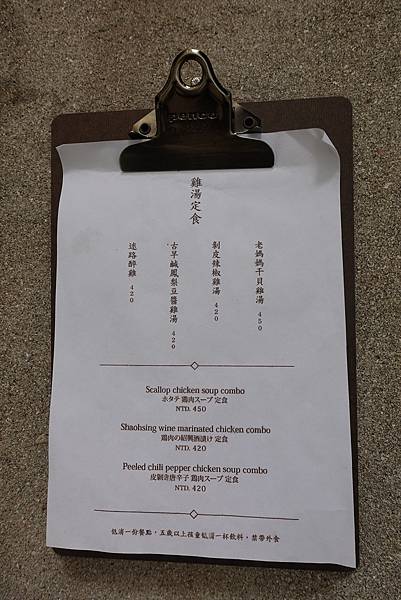 penco
雞湯定食
老媽媽干貝雞湯 450
剝皮辣椒雞湯 420
古早鹹鳳梨豆醬雞湯 420
迷路醉雞 420
Scallop chicken soup combo
ホタテ 鶏肉スープ 定食
NTD. 450
Shaohsing wine marinated chicken combo
鶏肉の紹興酒漬け 定食
NTD. 420
Peeled chili pepper chicken soup combo
皮剝き唐辛子 鶏肉スープ 定食
NTD. 420
低消一份餐點，五歲以上孩童低消一杯飲料，禁帶外食